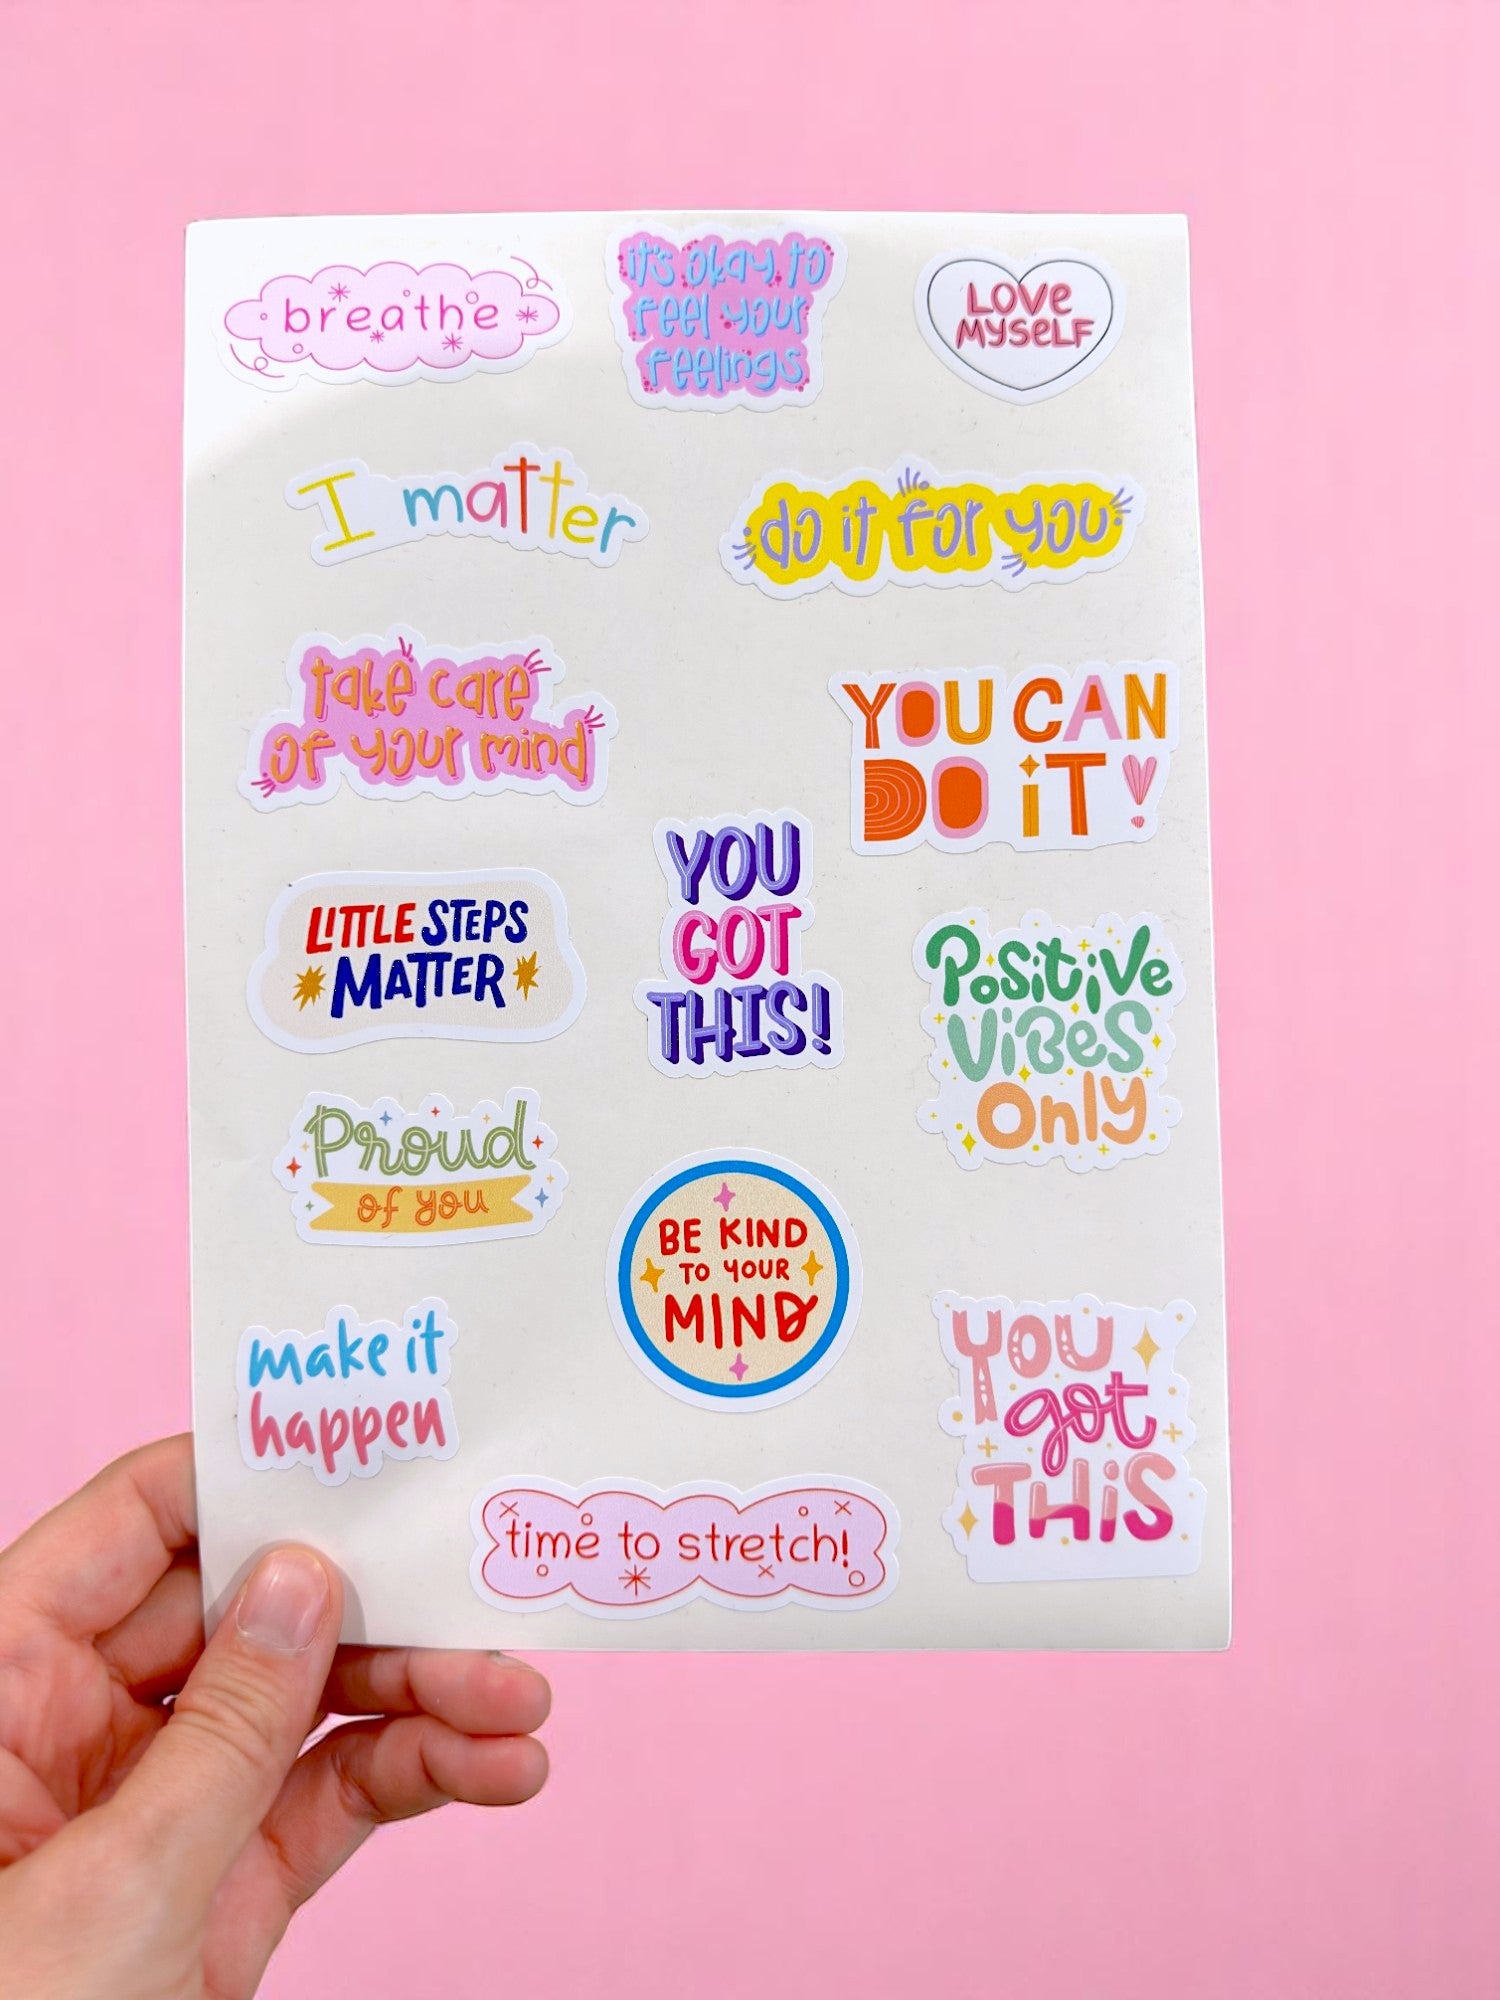 breathe
it's okay to
feel your
feelings
LOVE
MYSELF
I matter
do it for you
take care
of your mind
YOU CAN
DO iT!
LITTLE STEPS
MATTER
YOU
GOT
THIS!
Positive
ViBeS
Only
Proud
of you
BE KIND
TO YOUR
MIND
make it
happen
YOU
got
THiS
time to stretch!